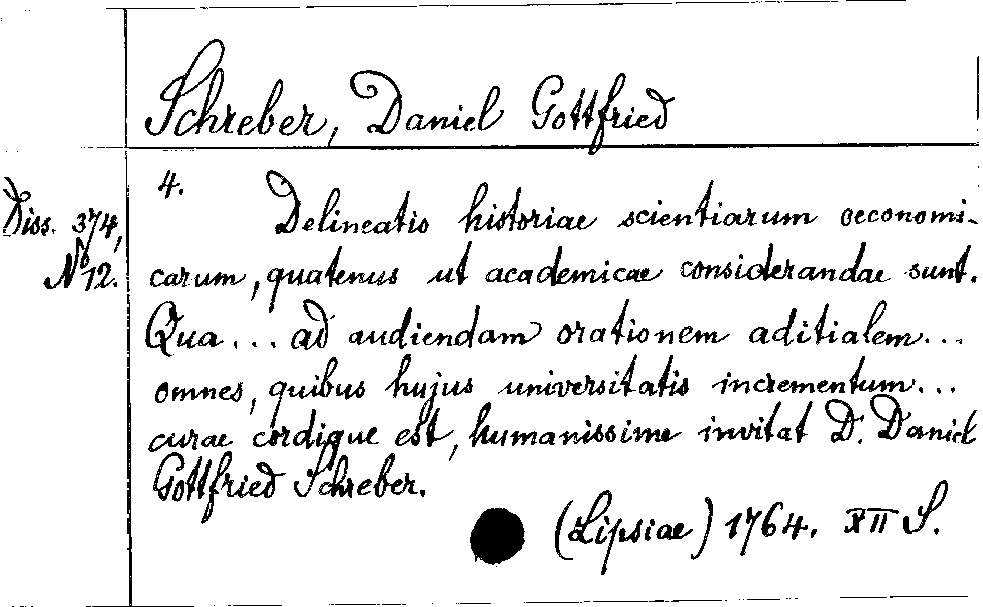 Schreber, Daniel Gottfried
4.
Diss. 374,
No 12.
Delineatio historiae scientiarum oeconomi-
carum, quatenus ut academicae considerandae sunt.
Qua ... ad audiendam orationem aditialem ...
omnes, quibus hujus universitatis incrementum ...
curae cordique est, humanissime invitat D. Daniel
Gottfried Schreber.
(Lipsiae) 1764. XII S.